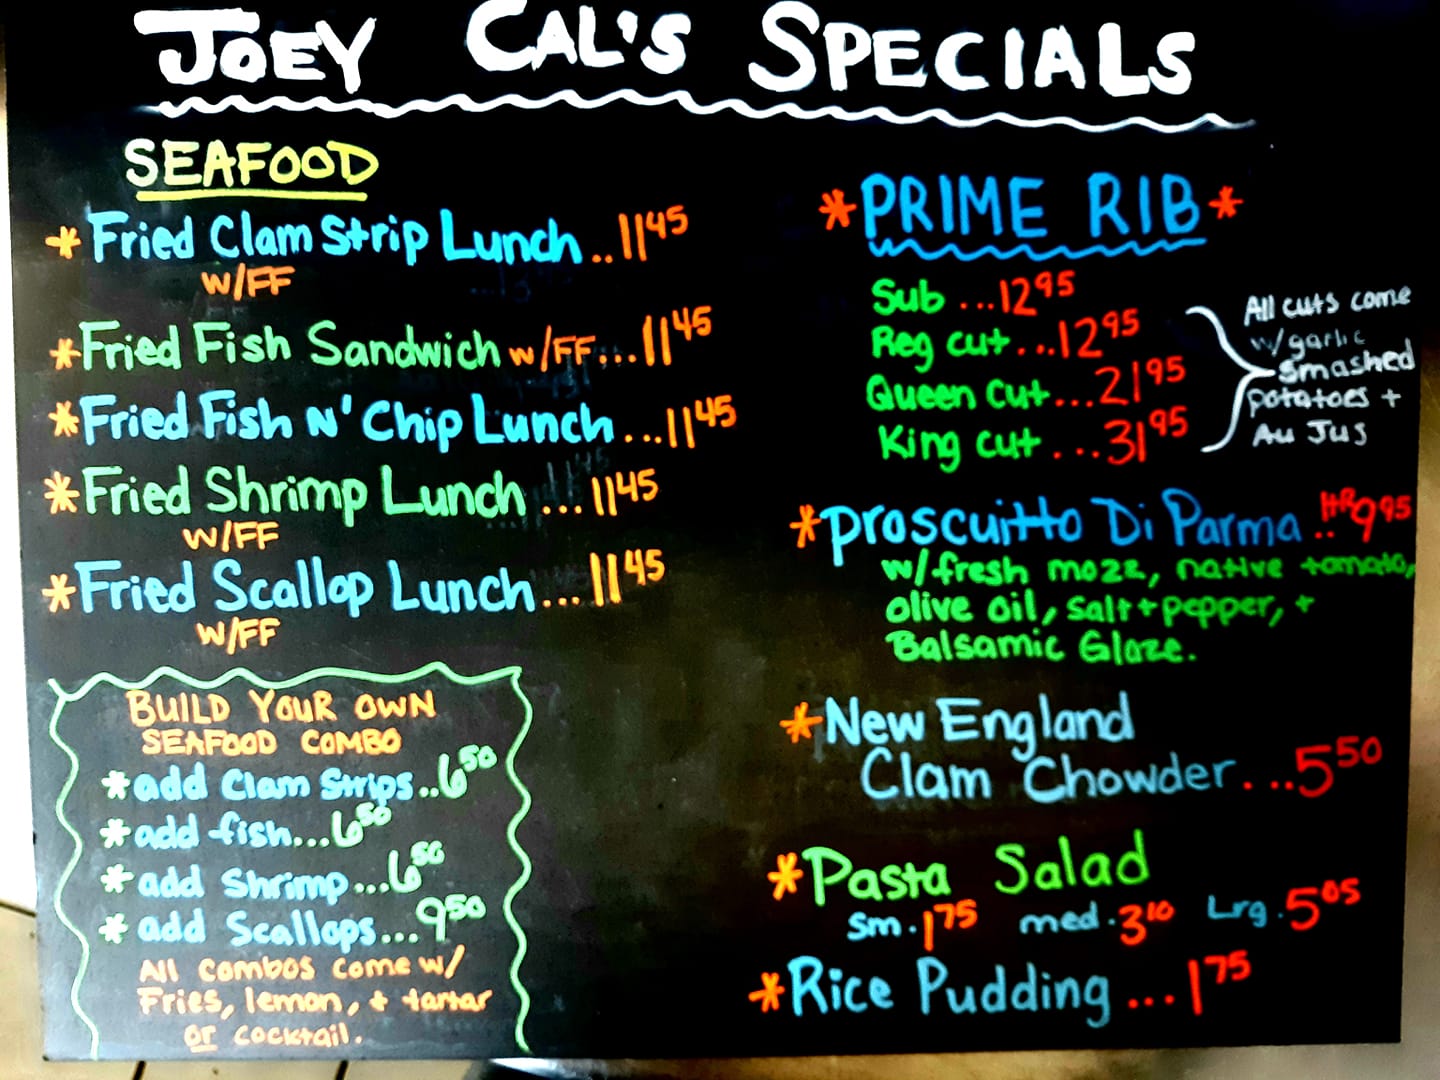 JOEY CAL'S SPECIALS
SEAFOOD
* Fried Clam Strip Lunch .. 11 45
w/FF
* Fried Fish Sandwich w/FF... 11 45
* Fried Fish N' Chip Lunch ... 11 45
* Fried Shrimp Lunch ... 11 45
w/FF
* Fried Scallop Lunch ... 11 45
w/FF
BUILD YOUR OWN
SEAFOOD COMBO
* add Clam Strips .. 6 50
* add fish... 6 50
* add Shrimp ... 6 50
* add Scallops ... 9 50
All combos come w/
Fries, lemon, + tartar
or cocktail.
* PRIME RIB *
Sub ... 12 95
Reg cut ... 12 95
Queen cut ... 21 95
King cut ... 31 95
All cuts come
w/garlic
smashed
potatoes +
Au Jus
* Proscuitto Di Parma .. 9 95
w/fresh mozz, native tomato,
olive oil, salt + pepper, +
Balsamic Glaze.
* New England
Clam Chowder ... 5 50
* Pasta Salad
Sm. 1 75 med. 3 10 Lrg. 5 05
* Rice Pudding ... 1 75